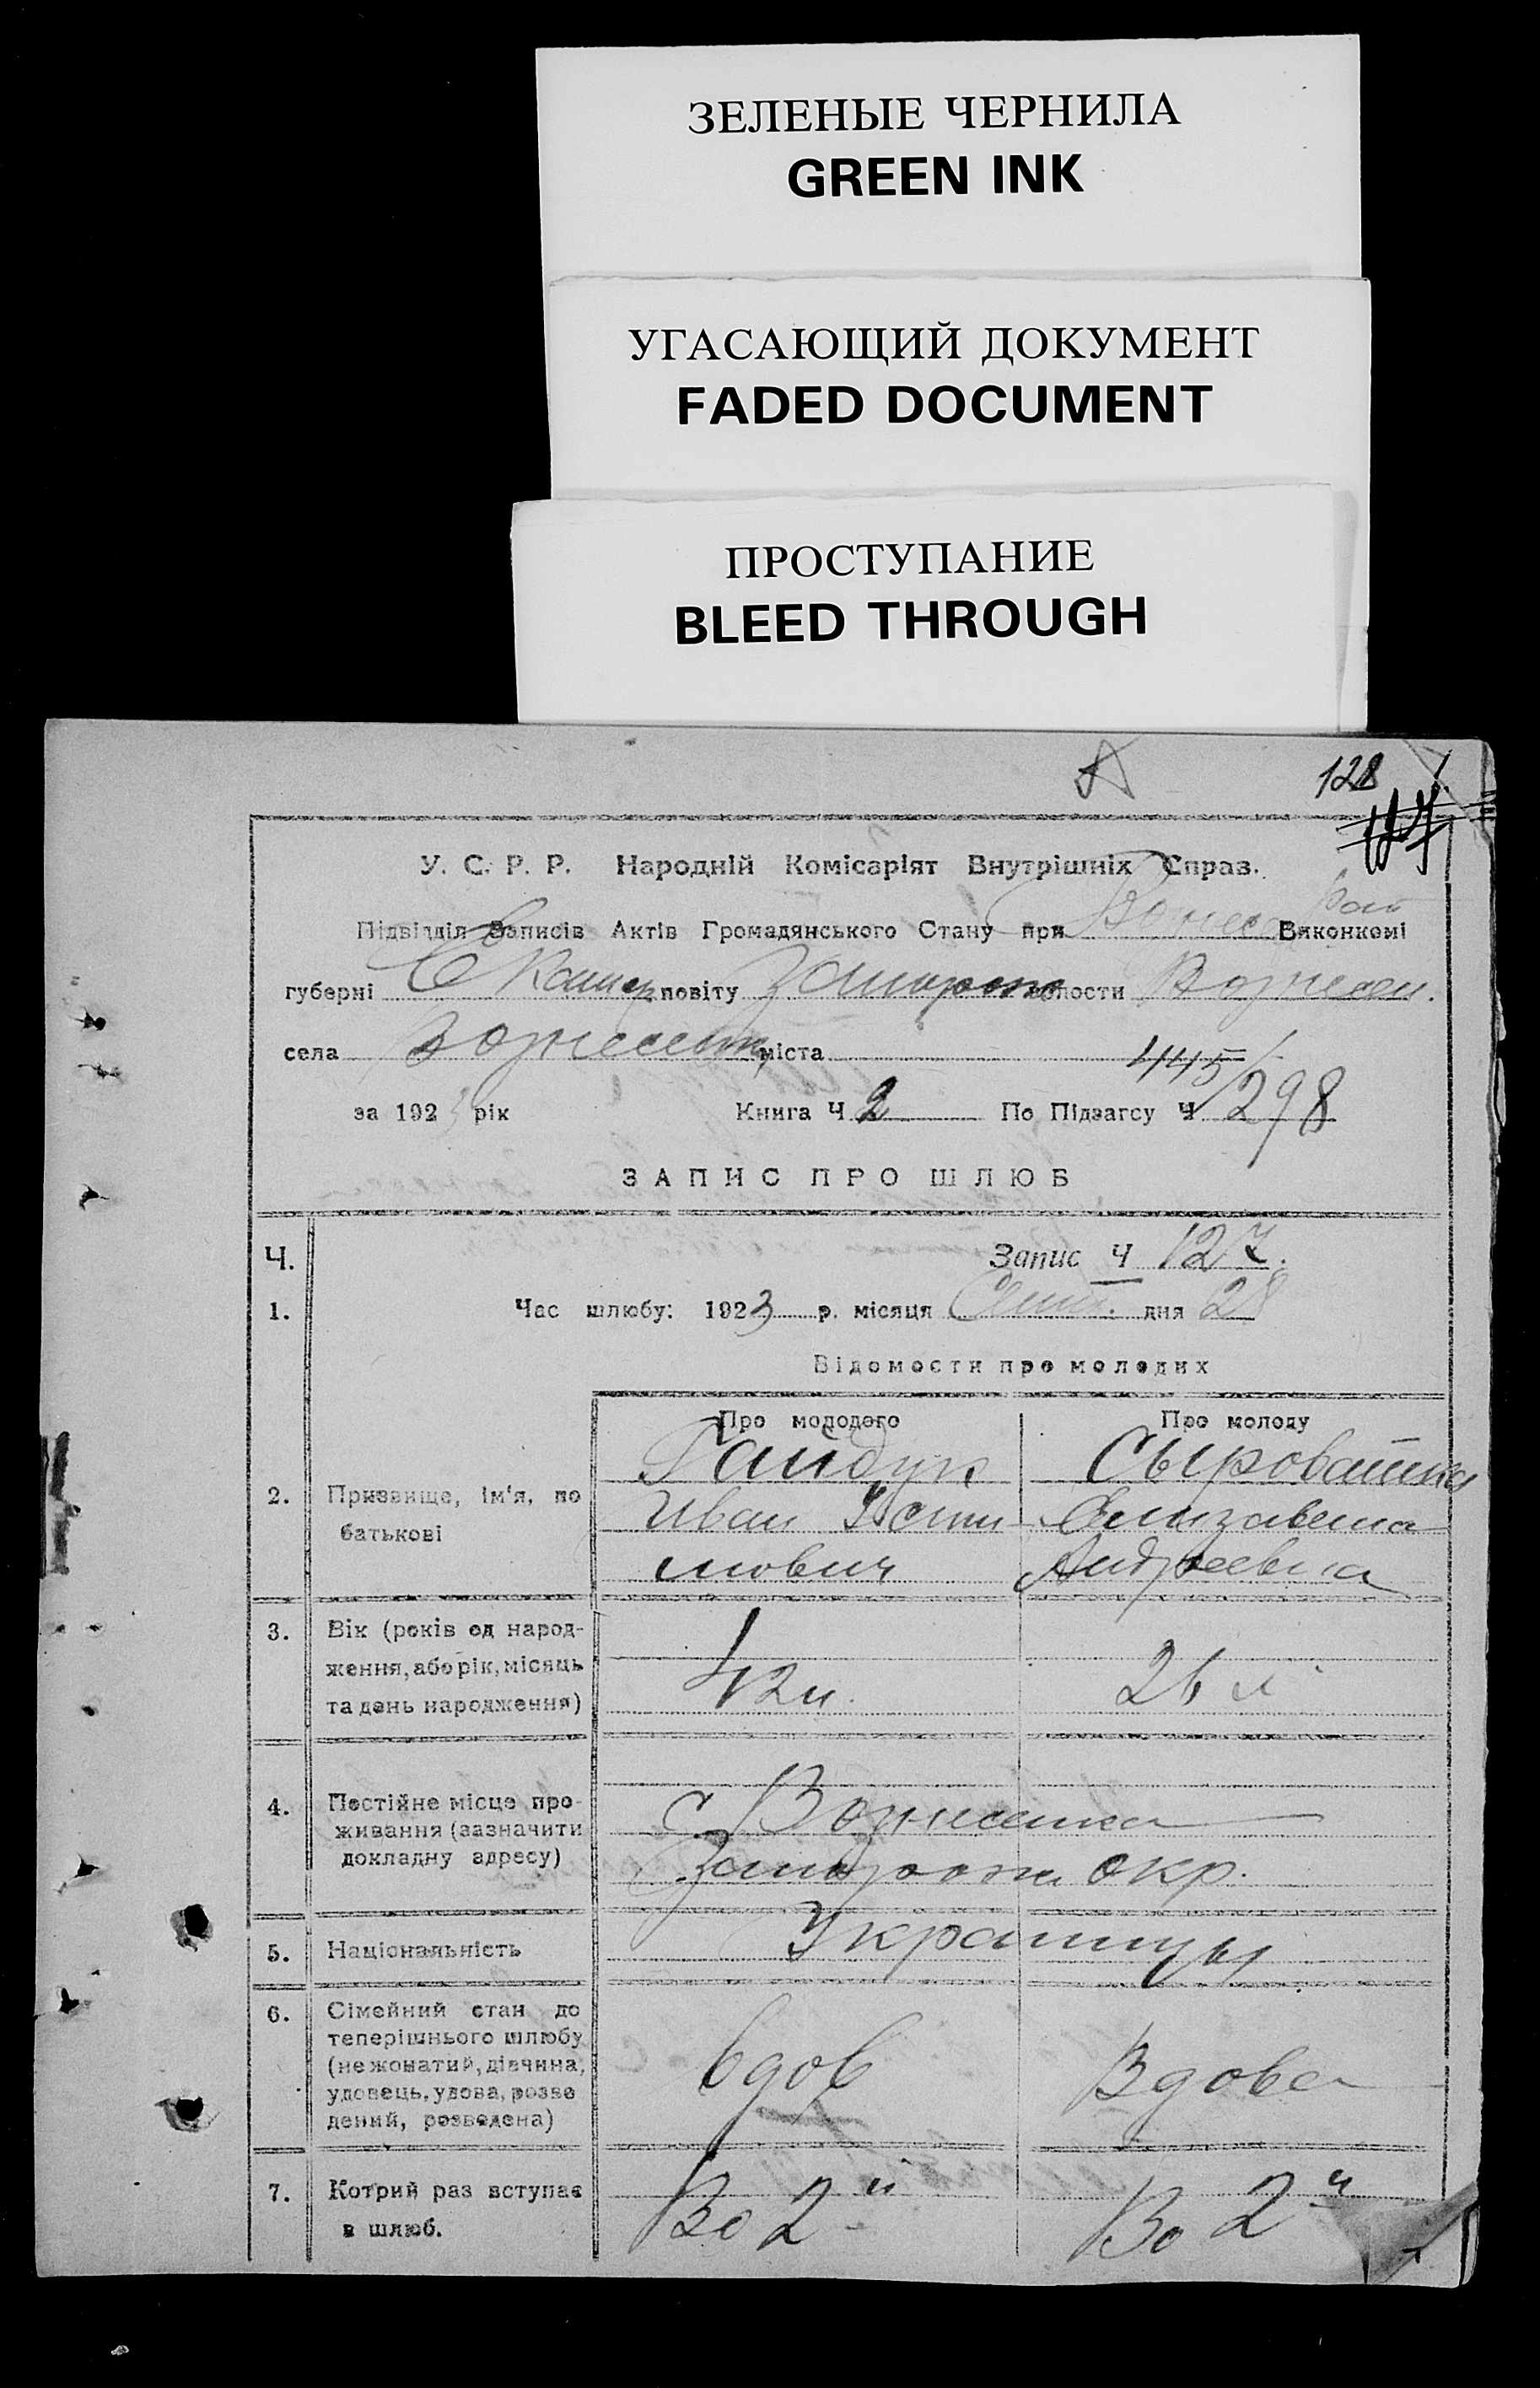 ЗЕЛЕНЫЕ ЧЕРНИЛА
GREEN INK
УГАСАЮЩИЙ ДОКУМЕНТ
FADED DOCUMENT
ПРОСТУПАНИЕ
BLEED THROUGH
128
У. С. Р. Р. Народній Комісаріят Внутрішніх Справ.
Підвідділ Записів Актів Громадянського Стану при Вознес Рай Виконкомі
губерні Екатер повіту Запорож волости Вознесен.
села Вознесен міста
445/298
за 1923 рік Книга Ч 2 По Підзагсу Ч
ЗАПИС ПРО ШЛЮБ
Ч. Запис Ч 127.
1. Час шлюбу: 1923 р. місяця Сент. дня 28
Відомости про молодих
Про молодого Про молоду
2. Призвище, ім'я, по батькові
Гайдук Сыроватка
Иван Усти Елизавета
мович Андреевна
3. Вік (років од народ-
ження, або рік, місяць
та день народження)
42 л. 26 л
4. Постійне місце про-
живання (зазначити
докладну адресу)
с. Вознесенка
Запорож окр.
5. Національність Украинцы
6. Сімейний стан до
теперішнього шлюбу
(нежонатий, дівчина,
удовець, удова, розве
дений, розведена)
вдов Вдова
7. Котрий раз вступає
в шлюб.
Во 2й Во 2й